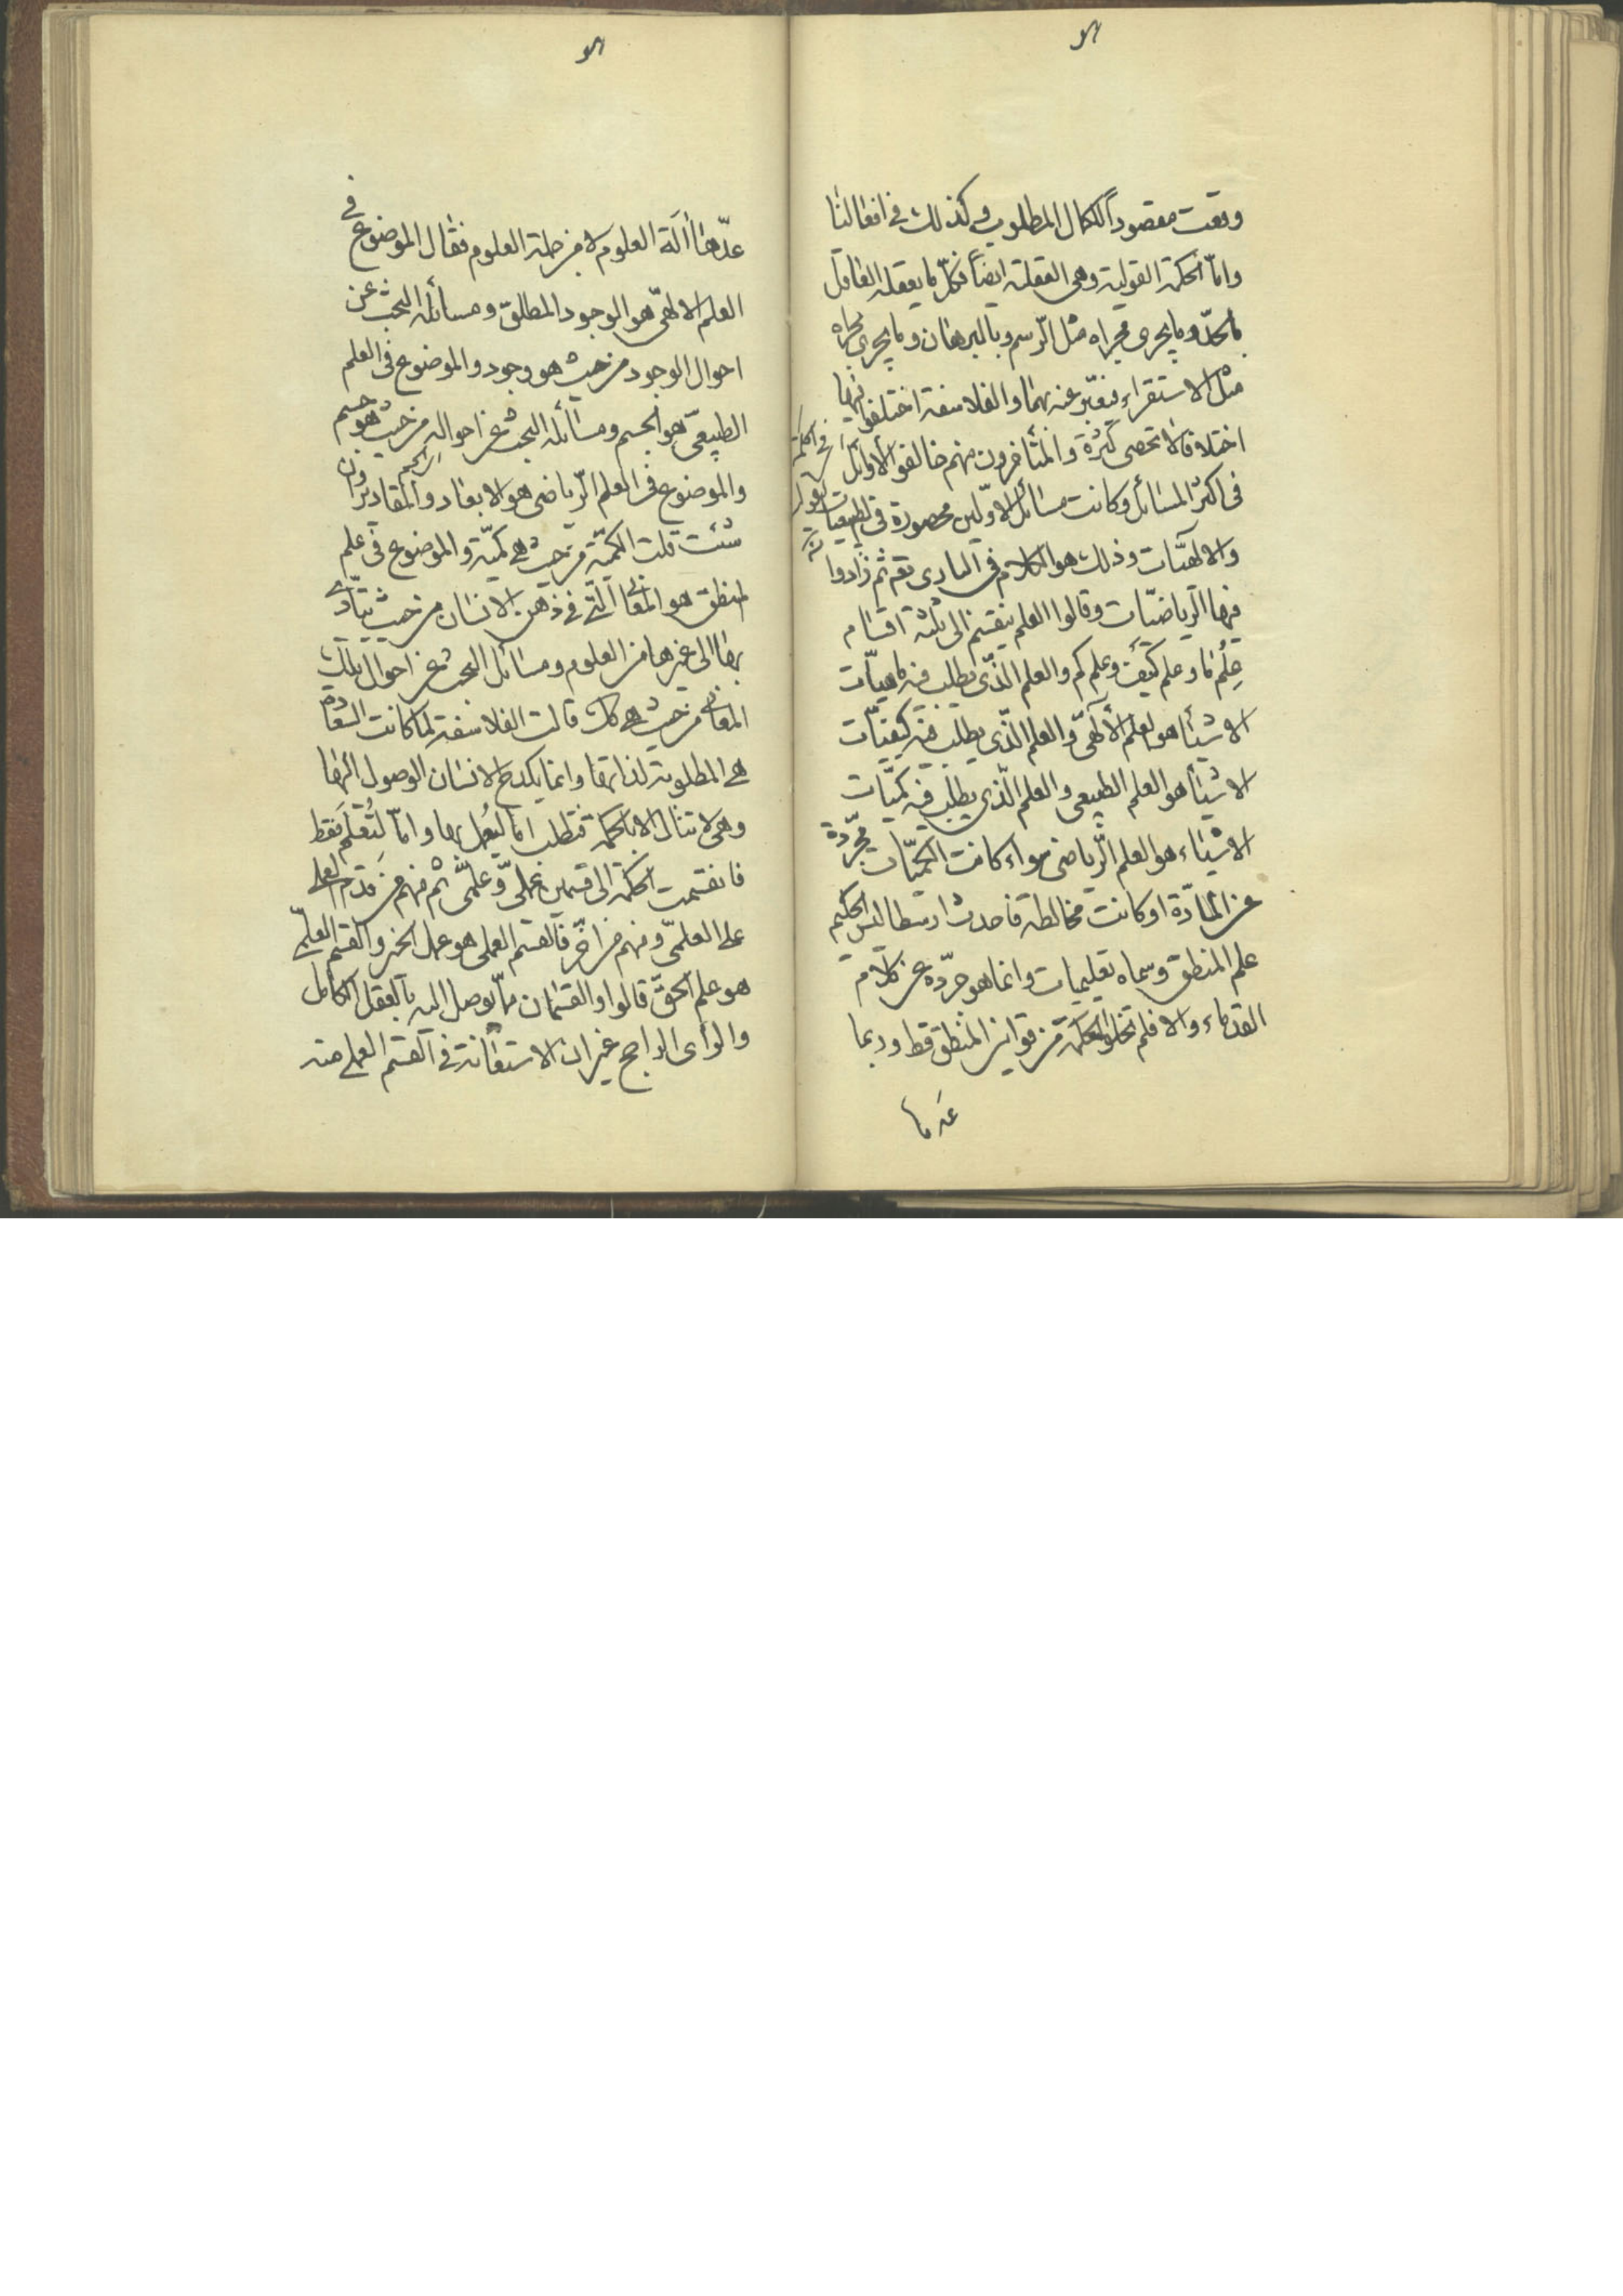 وقعت مقصوداً للكمال المطلوب وكذلك في افعالنا
واما الحكمة القولية وهي العقلية ايضاً فكل ما يعقله العاقل
بالحدّ وما يجري مجراه مثل الرّسم وبالبرهان وما يجري مجراه
مثل الاستقراء فيعبّر عنه بهما والفلاسفة اختلفوا
اختلافا لا تحصى كثرة والمتأخرون منهم خالفوا الاوائل
في اكثر المسائل وكانت مسائل الاوّلين محصورة في الطبيعيات
والالهيّات وذلك هو الكلام في الباري تع ثم زادوا
فيها الرياضيّات وقالوا العلم ينقسم الى ثلثة اقسام
علم ما وعلم كيف وعلم كم والعلم الذّي يطلب فيه ماهيّات
الاشيأ هو العلم الالهيّ والعلم الذّي يطلب فيه كيفيّات
الاشيأ هو العلم الطبيعي والعلم الذّي يطلب فيه كميّات
الاشياء هو العلم الرّياضي سواء كانت الكميّات مجرّدة
عن المادّة او كانت مخالطة فاحدث ارسطاليس الحكيم
علم المنطق وسماه تعليمات وانما هو جرّده عن كلام
القدماء والا فلم تخلوا الحكمة من قوانين المنطق قط وربما
عدها
في
عدّها آلة العلوم لا من جملة العلوم فقال الموضوع
العلم الالهيّ هو الوجود المطلق ومسائله البحث عن
احوال الوجود من حيث هو وجود والموضوع في العلم
الطبيعيّ هو الجسم ومسائله البحث عن احواله من حيث هو جسم
والموضوع في العلم الرّياضي هو الابعاد والمقادير وان
شئت قلت الكميّة من حيث هي كميّة والموضوع في علم
المنطق هو المعاني التي في ذهن الانسان من حيث يتأدّى
بها الى غيرها من العلوم ومسائل البحث عن احوال تلك
المعاني من حيث هي كك قالت الفلاسفة لما كانت السعادة
هي المطلوبة لذاتها وانما يكدح الانسان الوصول اليها
وهي لا تنال الا بالحكمة فتطلب اما ليُعمل بها واما لتُعلم فقط
فانقسمت الحكمة الى قسمين عمليّ وعلميّ ثم منهم من قدّم العملي
على العلميّ ومنهم من اخّر فالقسم العملي هو عمل الخير والقسم العلميّ
هو علم الحقّ قالوا والقسمان مما يوصل اليه بالعقل الكامل
والرأي الراجح غير ان الاستعانة في القسم العملي منه